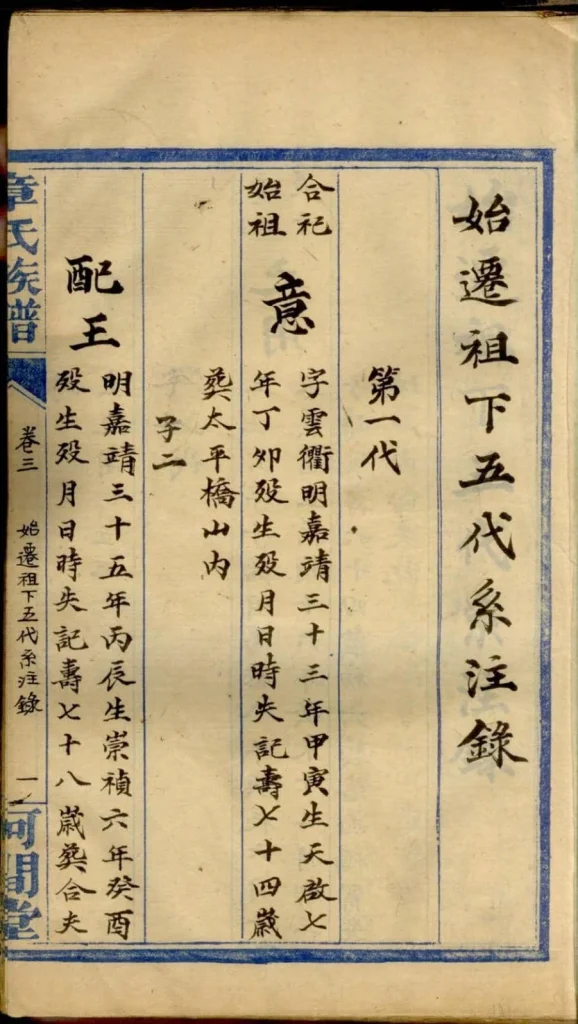 始遷祖下五代系注錄
第一代
合祀
始祖
意
字雲衢明嘉靖三十三年甲寅生天啟七
年丁卯歿生歿月日時失記壽七十四歲
葬太平橋山內
子二
配王
明嘉靖三十五年丙辰生崇禎六年癸酉
歿生歿月日時失記壽七十八歲葬合夫
章氏族譜
卷三
始遷祖下五代系注錄
一
河間堂